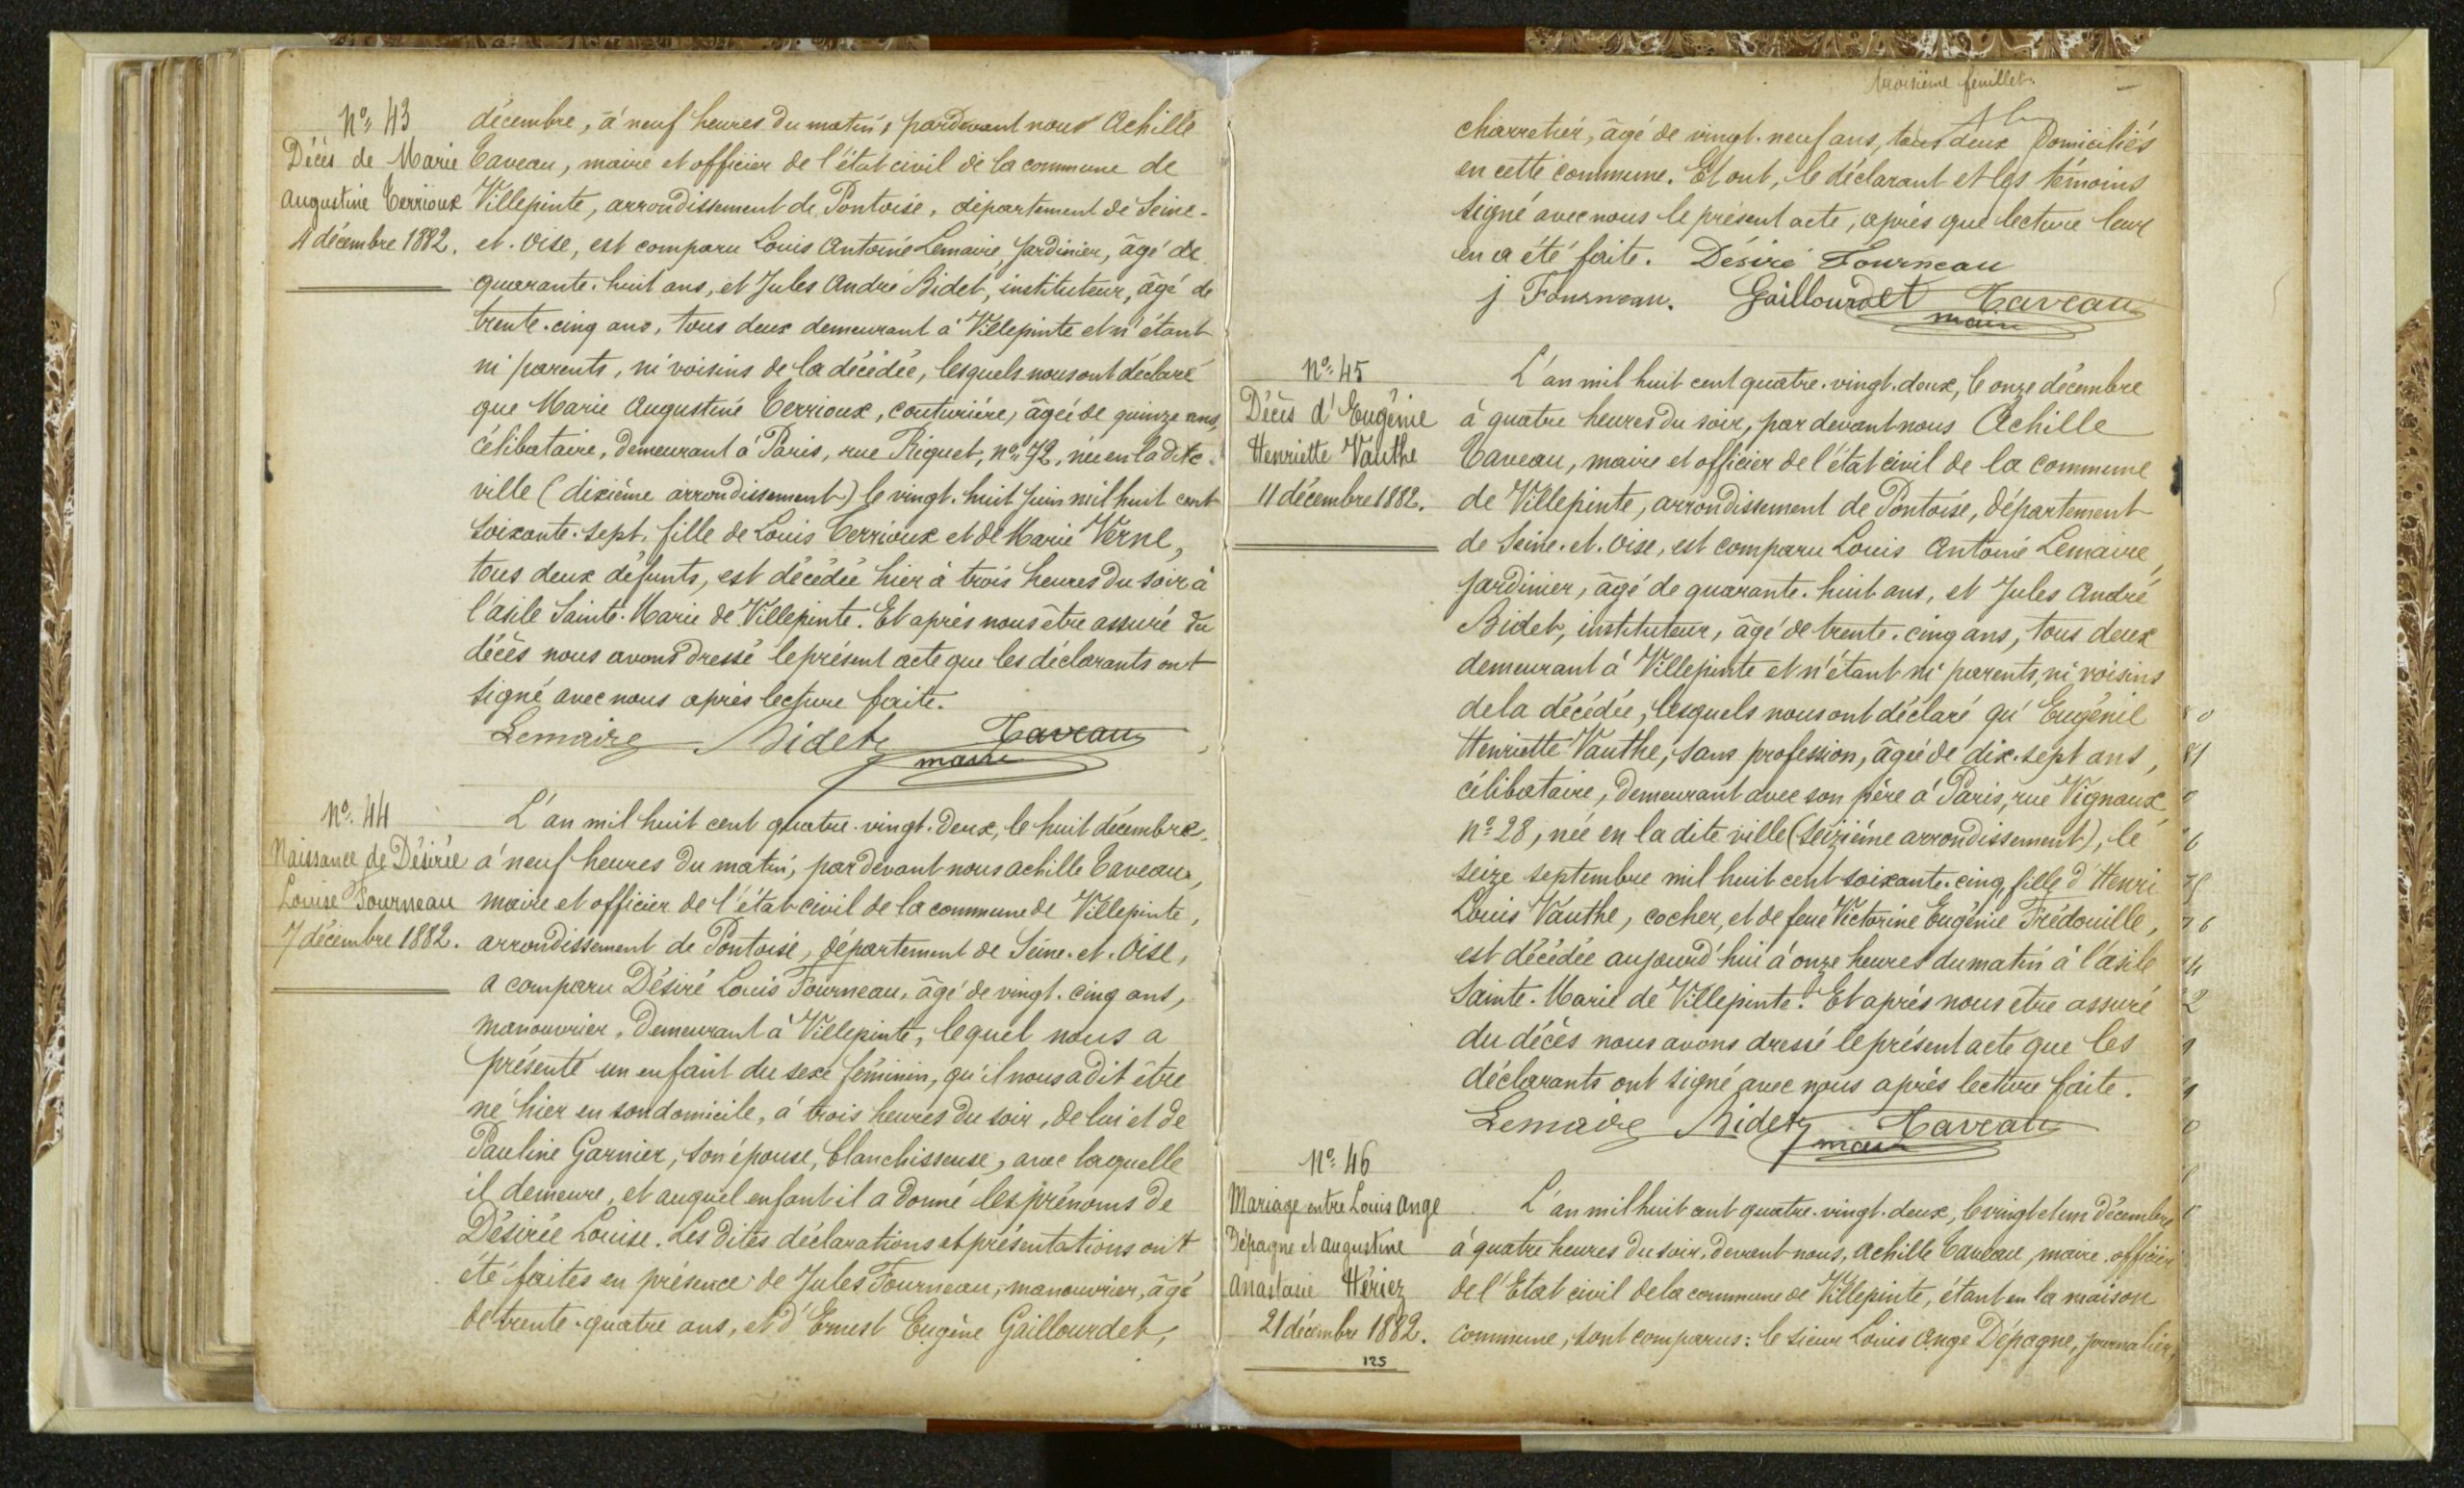 Nº 43
Décès de Marie
Augustine Terrioux
4 décembre 1882.
décembre, à neuf heures du matin, pardevant nous Achille
Taveau, maire et officier de l'état civil de la commune de
Villepinte, arrondissement de Pontoise, département de Seine-
et-Oise, est comparu Louis Antoine Lemaire, jardinier, âgé de
quarante-huit ans, et Jules André Bidet, instituteur, âgé de
trente-cinq ans, tous deux demeurant à Villepinte et n'étant
ni parents, ni voisins de la décédée, lesquels nous ont déclaré
que Marie Augustine Terrioux, couturière, âgée de quinze ans,
célibataire, demeurant à Paris, rue Riquet, nº 72, née en la dite
ville (dixième arrondissement) le vingt-huit juin mil huit cent
soixante-sept, fille de Louis Terrioux et de Marie Verne,
tous deux défunts, est décédée hier à trois heures du soir à
l'asile Sainte-Marie de Villepinte. Et après nous être assuré du
décès nous avons dressé le présent acte que les déclarants ont
signé avec nous après lecture faite.
Lemaire Bidet Taveau
maire
Nº 44
Naissance de Désirée
Louise Fourneau
7 décembre 1882.
L'an mil huit cent quatre-vingt-deux, le huit décembre,
à neuf heures du matin, par devant nous Achille Taveau,
maire et officier de l'état civil de la commune de Villepinte,
arrondissement de Pontoise, département de Seine-et-Oise,
a comparu Désiré Louis Fourneau, âgé de vingt-cinq ans,
manouvrier, demeurant à Villepinte, lequel nous a
présenté un enfant du sexe féminin, qu'il nous a dit être
né hier en son domicile, à trois heures du soir, de lui et de
Pauline Garnier, son épouse, blanchisseuse, avec laquelle
il demeure, et auquel enfant il a donné les prénoms de
Désirée Louise. Les dites déclarations et présentations ont
été faites en présence de Jules Fourneau, manouvrier, âgé
de trente-quatre ans, et d'Ernest Eugène Gaillourdet,
troisième feuillet
charretier, âgé de vingt-neuf ans, tous deux domiciliés
en cette commune. Et ont, le déclarant et les témoins
signé avec nous le présent acte, après que lecture leur
en a été faite. Désiré Fourneau
j Fourneau. Gaillourdet Taveau
maire
Nº 45
Décès d'Eugénie
Henriette Vauthe
11 décembre 1882.
L'an mil huit cent quatre-vingt-deux, le onze décembre
à quatre heures du soir, par devant nous Achille
Taveau, maire et officier de l'état civil de la commune
de Villepinte, arrondissement de Pontoise, département
de Seine-et-Oise, est comparu Louis Antoine Lemaire,
jardinier, âgé de quarante-huit ans, et Jules André
Bidet, instituteur, âgé de trente-cinq ans, tous deux
demeurant à Villepinte et n'étant ni parents, ni voisins
de la décédée, lesquels nous ont déclaré qu'Eugénie
Henriette Vauthe, sans profession, âgée de dix-sept ans,
célibataire, demeurant avec son père à Paris, rue Vignaux,
nº 28, née en la dite ville (seizième arrondissement), le
seize septembre mil huit cent soixante-cinq, fille d'Henri
Louis Vauthe, cocher, et de feue Victorine Eugénie Frédouille,
est décédée aujourd'hui à onze heures du matin à l'asile
Sainte-Marie de Villepinte. Et après nous être assuré
du décès nous avons dressé le présent acte que les
déclarants ont signé avec nous après lecture faite.
Lemaire Bidet Taveau
maire
Nº 46
Mariage entre Louis Ange
Dépagne et Augustine
Anastasie Hériez
21 décembre 1882.
125
L'an mil huit cent quatre-vingt-deux, le vingt et un décembre
à quatre heures du soir, devant nous, Achille Taveau, maire, officier
de l'Etat civil de la commune de Villepinte, étant en la maison
commune, sont comparus: le sieur Louis Ange Dépagne, journalier,